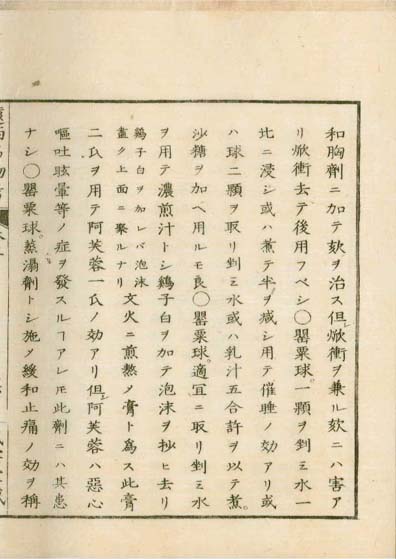 和胸劑ニ加テ欬ヲ治ス但焮衝ヲ兼ル欬ニハ害ア
リ焮衝去テ後用フベシ〇罌粟球一顆ヲ剉ミ水一
ヒニ浸シ或ハ煮テ半ヲ減シ用テ催睡ノ効アリ或
ハ球二顆ヲ取リ剉ミ水或ハ乳汁五合許ヲ以テ煮
沙糖ヲ加ヘ用ルモ良〇罌粟球適宜ニ取リ剉ミ水
ヲ用テ濃煎汁トシ鷄子白ヲ加テ泡沫ヲ抄ヒ去リ
鷄子白ヲ加レバ泡沫
盡ク上面ニ聚ルナリ
文火ニ煎熬メ膏ト爲ス此膏
二氐ヲ用テ阿芙蓉一氐ノ効アリ但阿芙蓉ハ惡心
嘔吐眩暈等ノ症ヲ發スルヿアレ𪜈此劑ニハ其患
ナシ〇罌粟球蒸溻劑トシ施メ緩和止痛ノ効ヲ稱